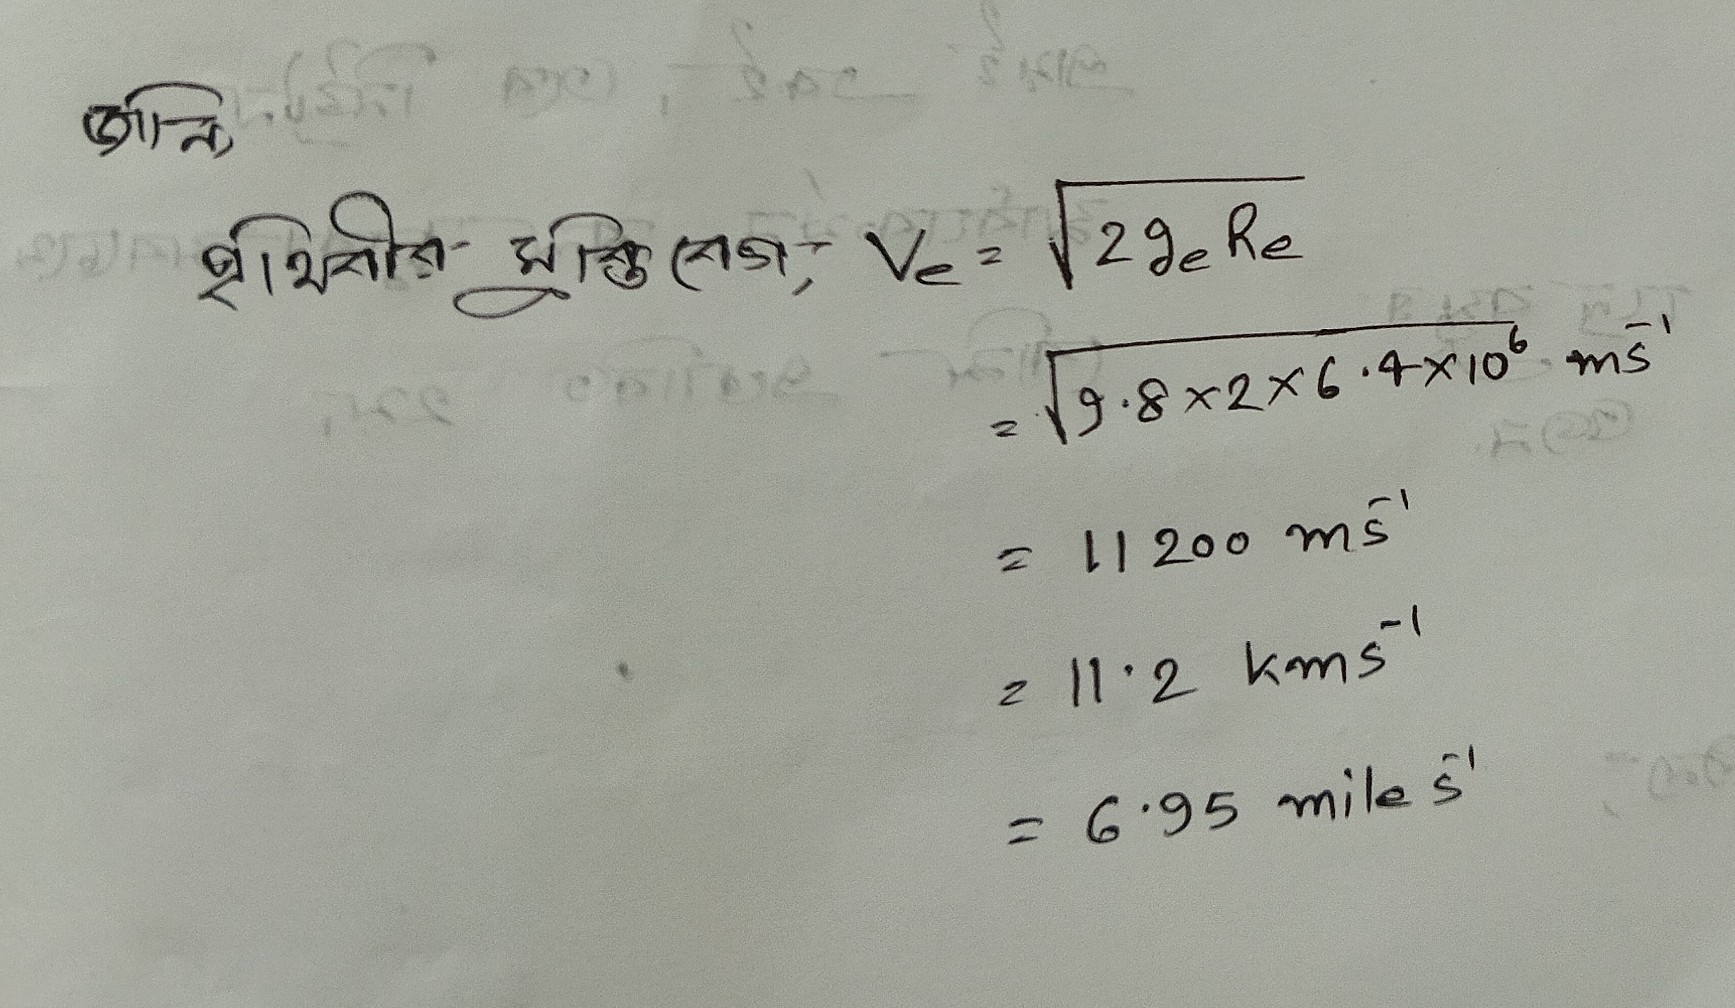 জানি,
পৃথিবীর মুক্তিবেগ, Ve = √2geRe
= √9.8×2×6.4×10⁶ ms⁻¹
= 11200 ms⁻¹
= 11.2 kms⁻¹
= 6.95 mile s⁻¹